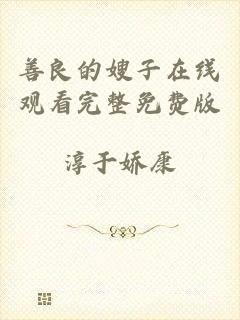 善良的嫂子在线
观看完整免费版
淳于娇康